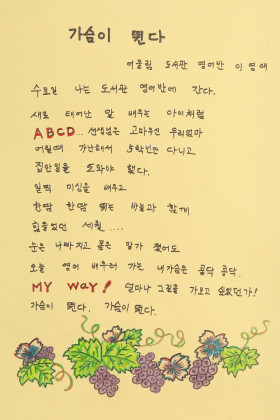 가슴이 뛴다
어울림 도서관 영어반 이영애
수요일 나는 도서관 영어반에 간다.
새로 태어난 말 배우는 아이처럼
ABCD... 선생님은 고마우신 우리엄마
어릴때 가난해서 5학년만 다니고
집안일을 도와야 했다.
일찍 미싱을 배우고
한땀 한땀 뛰는 바늘과 함께
힘들었던 세월 ....
눈은 나빠지고 몸은 말가 졌어도
오늘 영어 배우러 가는 내가슴은 콩닥 콩닥.
MY WAY! 얼마나 그길을 가보고 싶었던가!
가슴이 뛴다. 가슴이 뛴다.